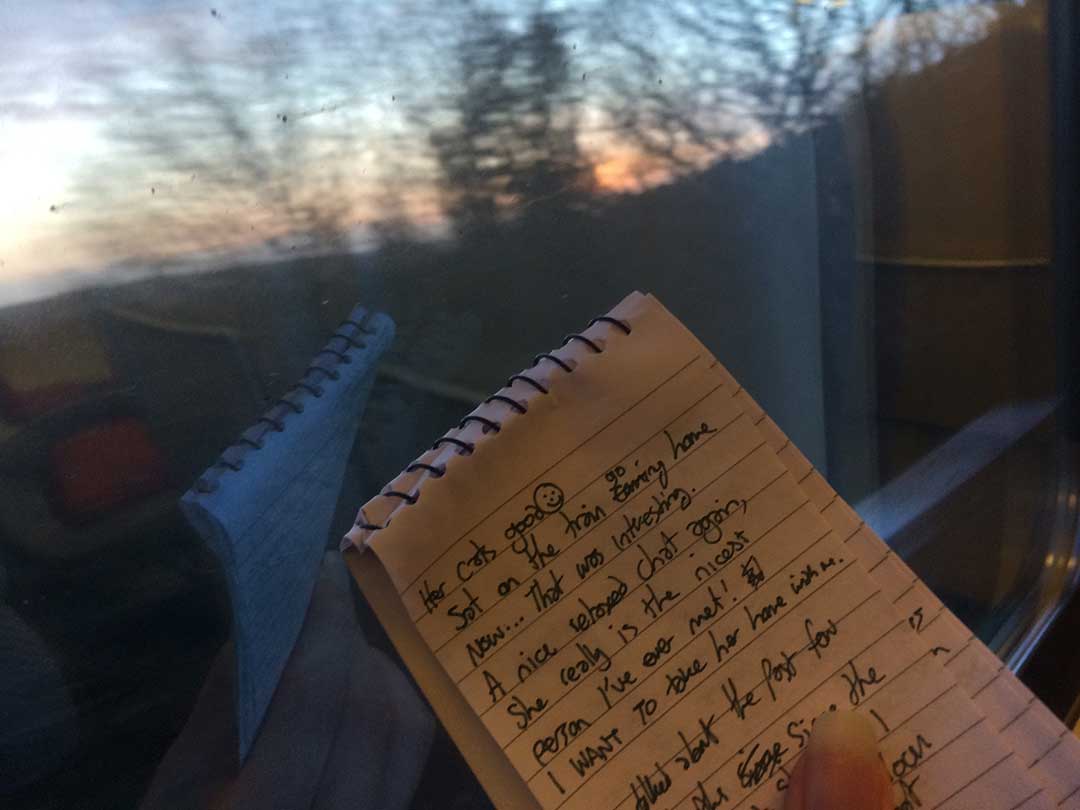 Her cats good
Sat on the train going home
Now... That was interesting.
A nice relaxed chat again,
She really is the nicest
person I've ever met!
I WANT TO take her home with me.
about the past few
the